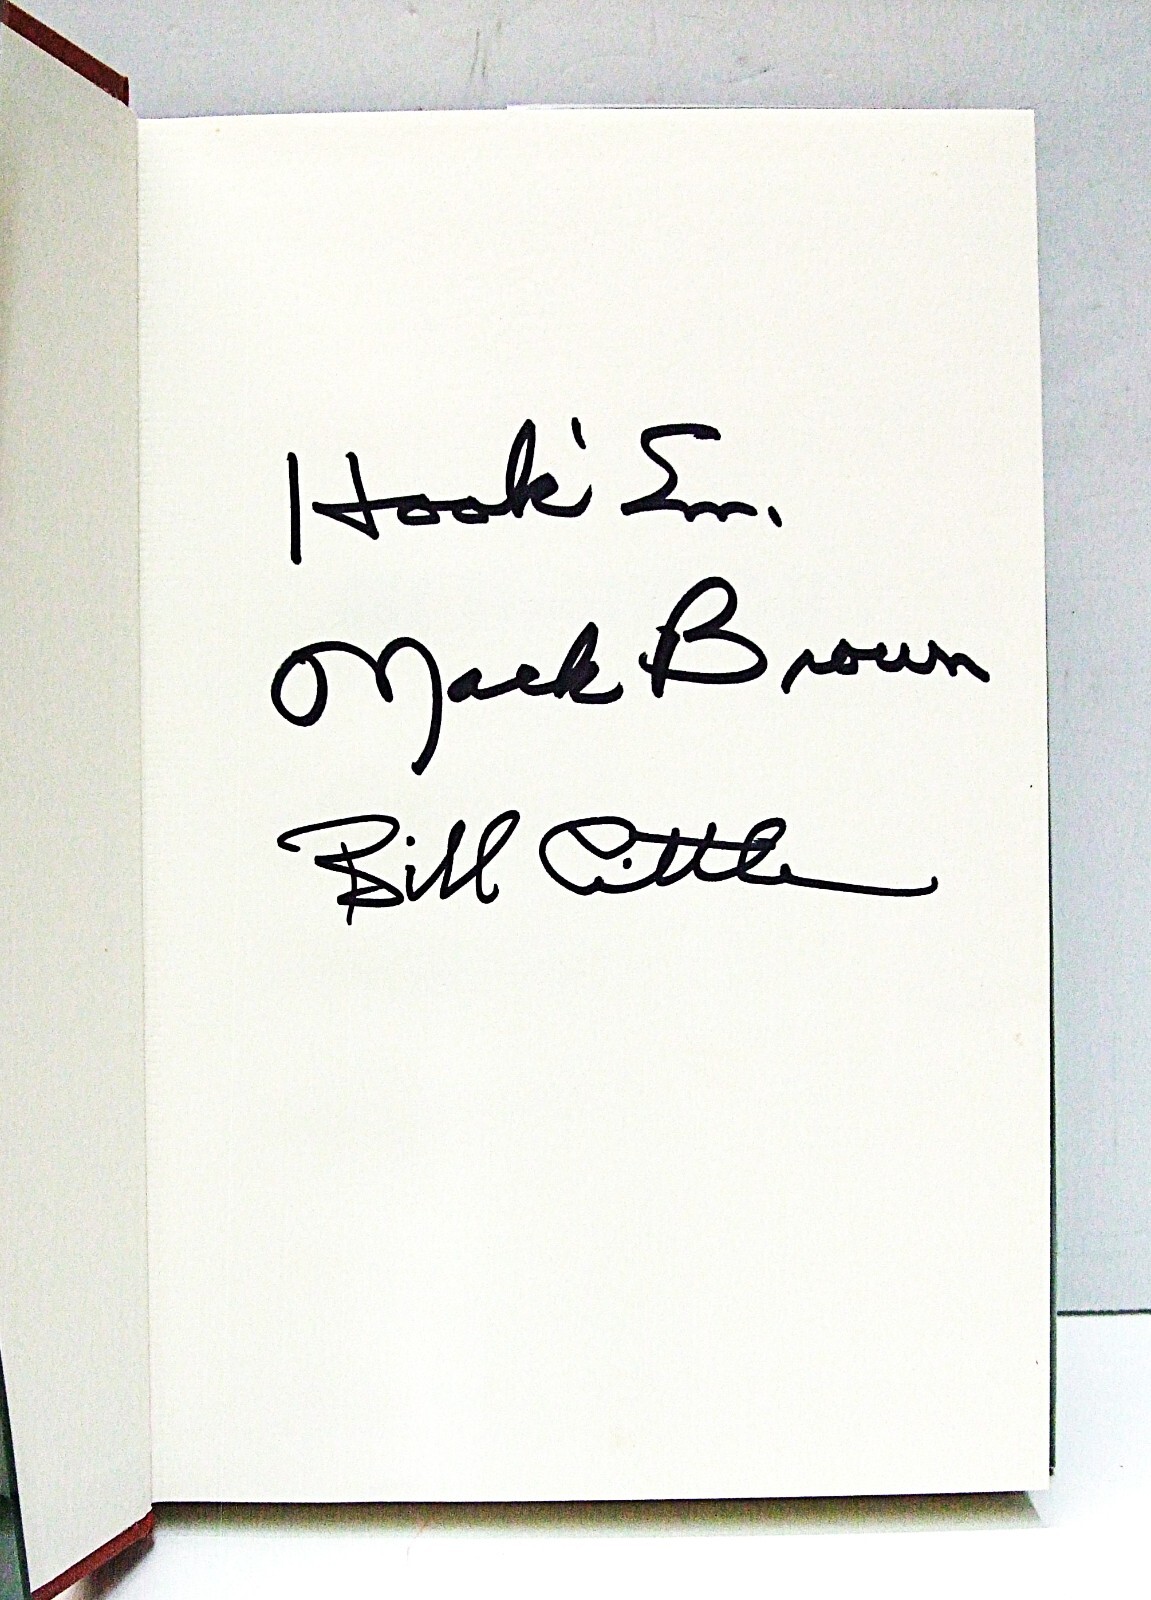 Hook 'Em.
Mack Brown
Bill Little